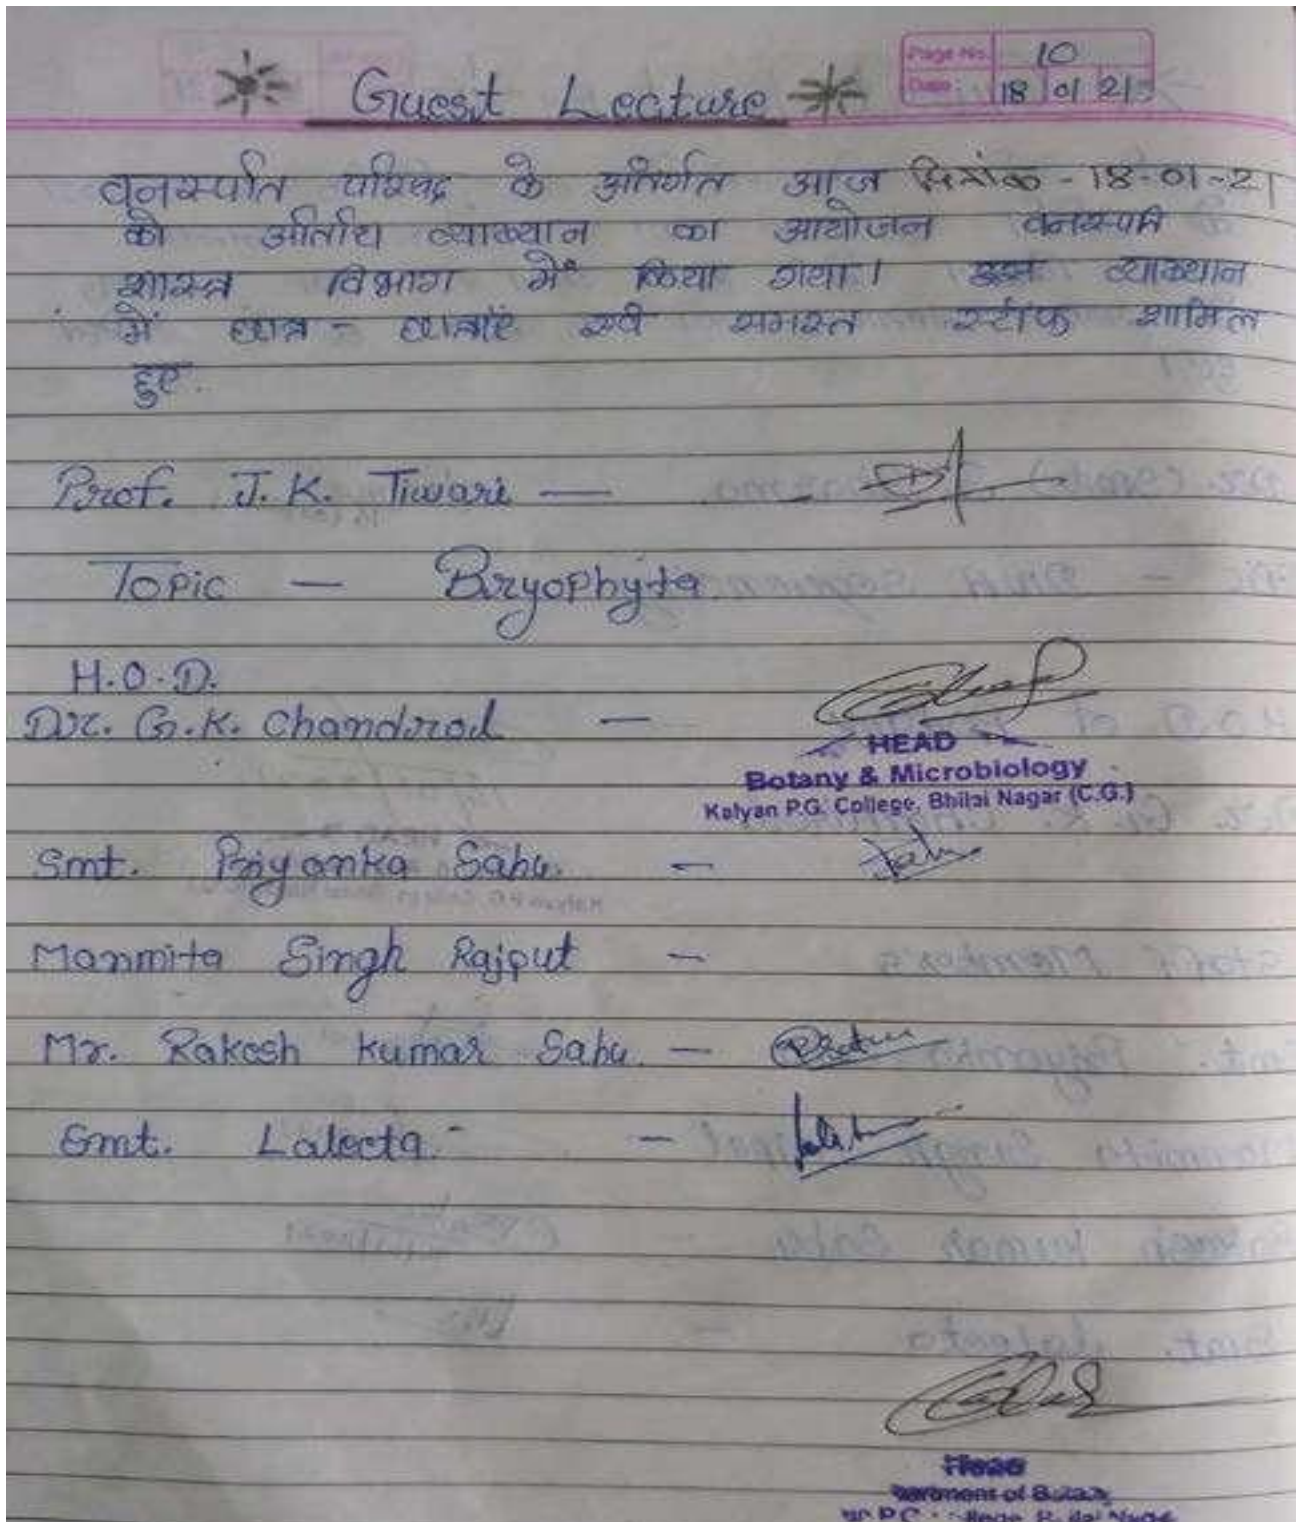 Page No. 10
Date: 18 01 21
Guest Lecture
वनस्पति परिषद के अंतर्गत आज दिनांक - 18-01-21
को अतिथि व्याख्यान का आयोजन वनस्पति
शास्त्र विभाग में किया गया। इस व्याख्यान
में छात्र - छात्राएं एवं समस्त स्टॉफ शामिल
हुए.
Prof. J. K. Tiwari —
Topic — Bryophyta
H.O.D.
Dr. G.K. Chandrol —
HEAD
Botany & Microbiology
Kalyan P.G. College, Bhilai Nagar (C.G.)
Smt. Priyanka Sahu. —
Manmita Singh Rajput —
Mr. Rakesh Kumar Sahu. —
Smt. Laleeta. —
Head
Department of Botany